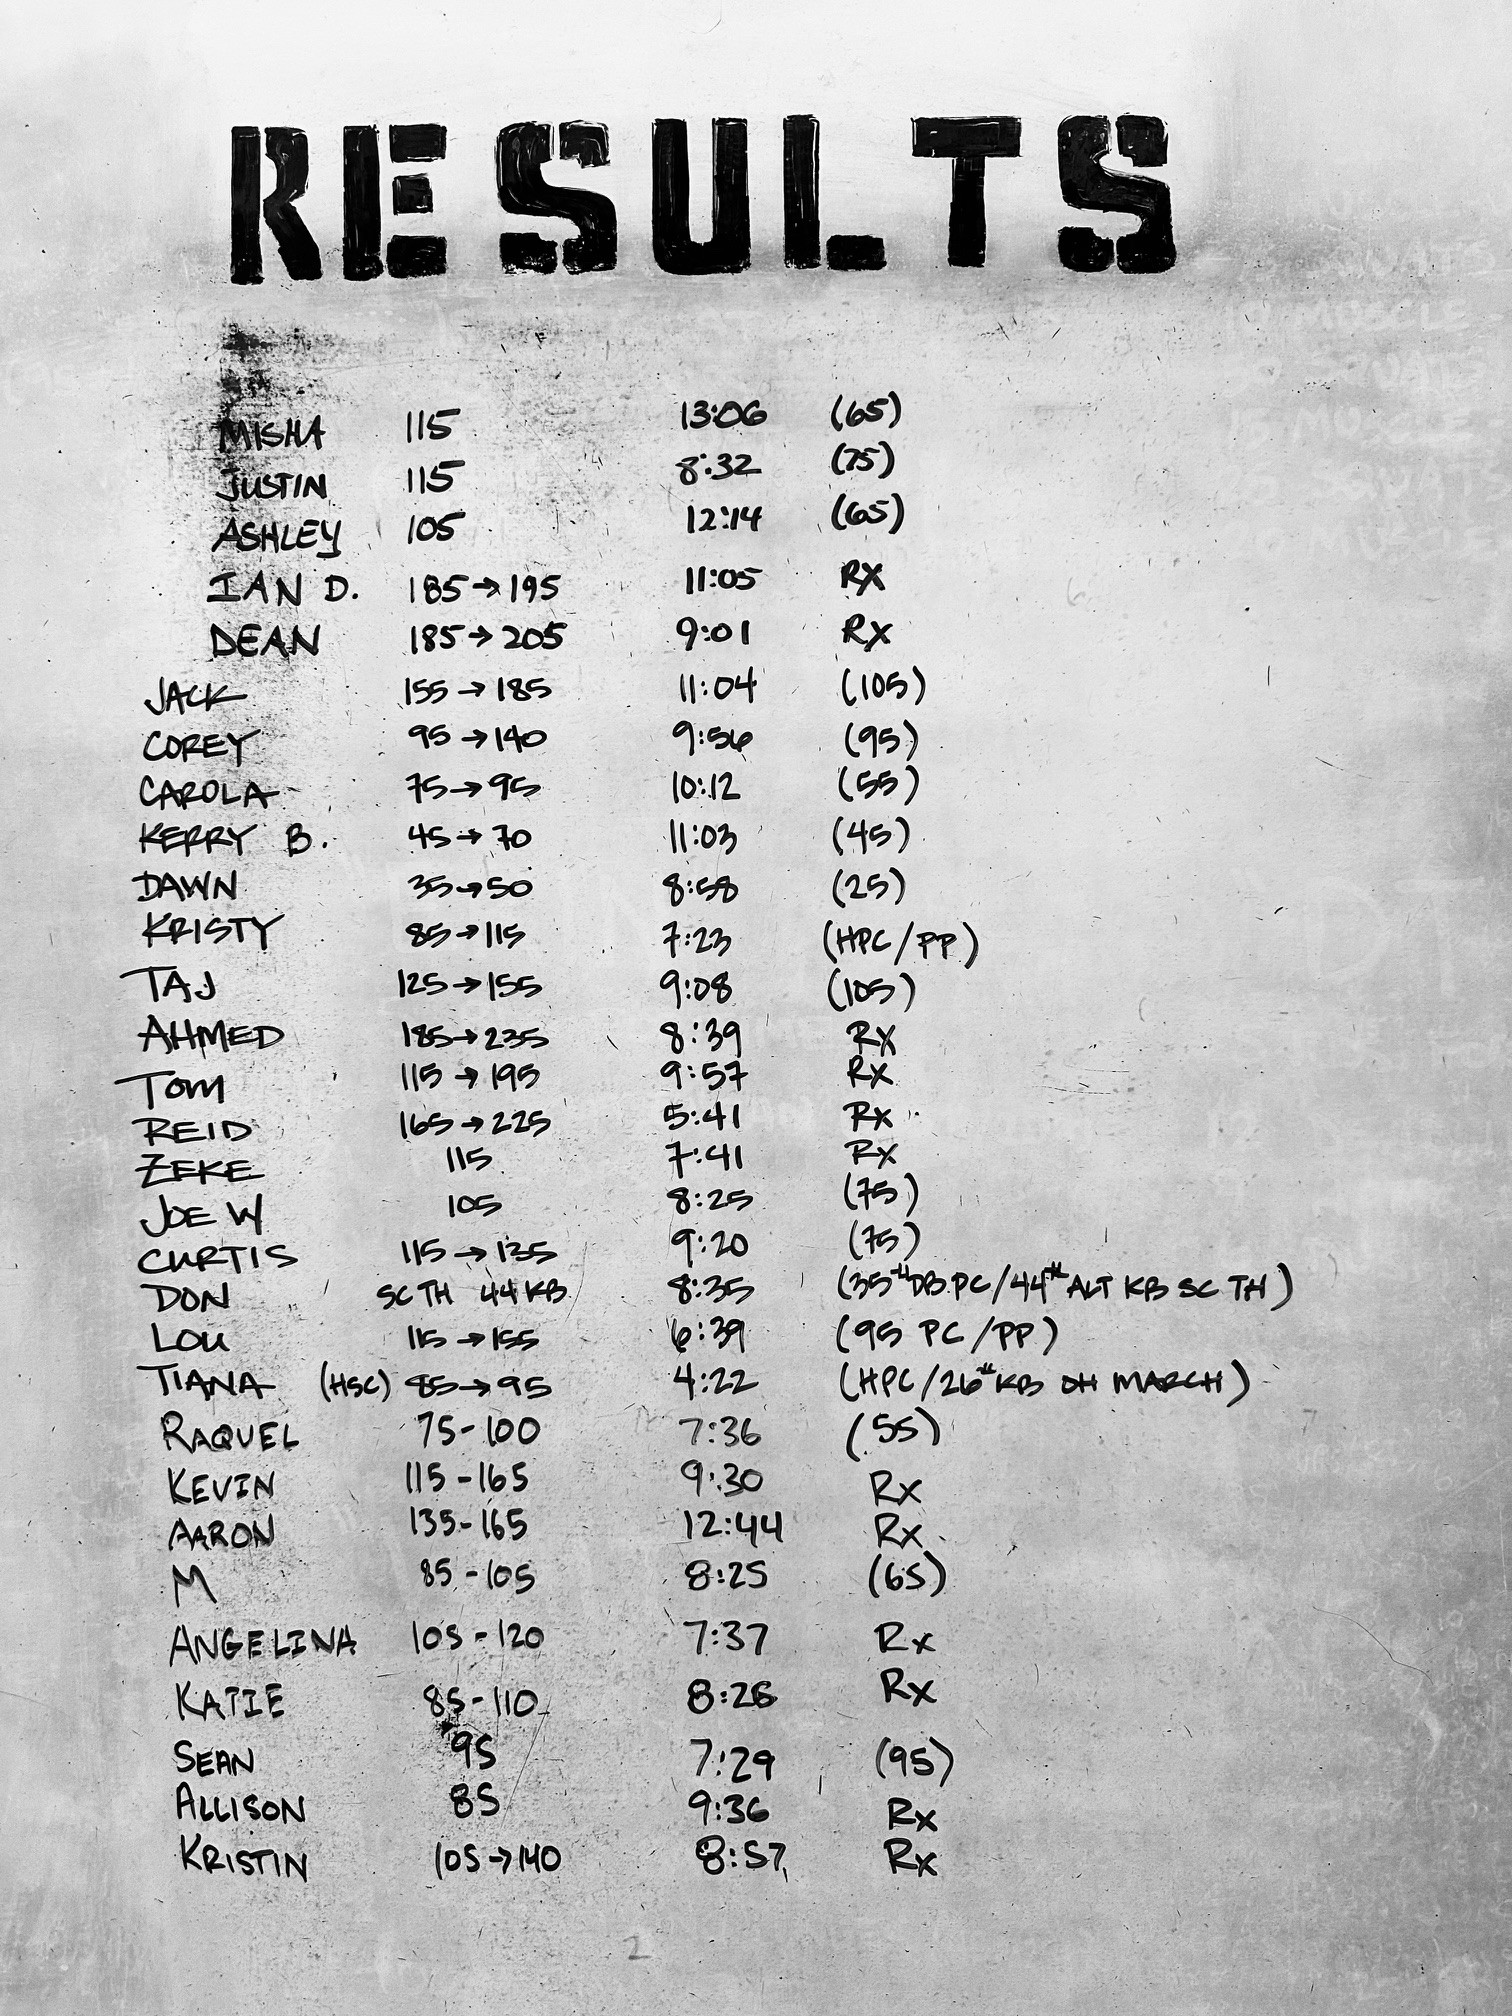 RESULTS
MISHA 115 13:06 (65)
JUSTIN 115 8:32 (75)
ASHLEY 105 12:14 (65)
IAN D. 185→195 11:05 RX
DEAN 185→205 9:01 RX
JACK 155→185 11:04 (105)
COREY 95→140 9:56 (95)
CAROLA 75→95 10:12 (55)
KERRY B. 45→70 11:03 (45)
DAWN 35→50 8:58 (25)
KRISTY 85→115 7:23 (HPC/PP)
TAJ 125→155 9:08 (105)
AHMED 185→235 8:39 RX
TOM 115→195 9:57 RX
REID 165→225 5:41 RX
ZEKE 115 7:41 RX
JOE W 105 8:25 (75)
CURTIS 115→135 9:20 (75)
DON SC TH 44 KB 8:35 (35# DB PC/44# ALT KB SC TH)
LOU 115→155 6:39 (95 PC/PP)
TIANA (HSC) 85→95 4:22 (HPC/26# KB OH MARCH)
RAQUEL 75-100 7:36 (55)
KEVIN 115-165 9:30 Rx
AARON 135-165 12:44 Rx
M 85-105 8:25 (65)
ANGELINA 105-120 7:37 Rx
KATIE 85-110 8:26 Rx
SEAN 95 7:29 (95)
ALLISON 85 9:36 Rx
KRISTIN 105→140 8:57 Rx
2